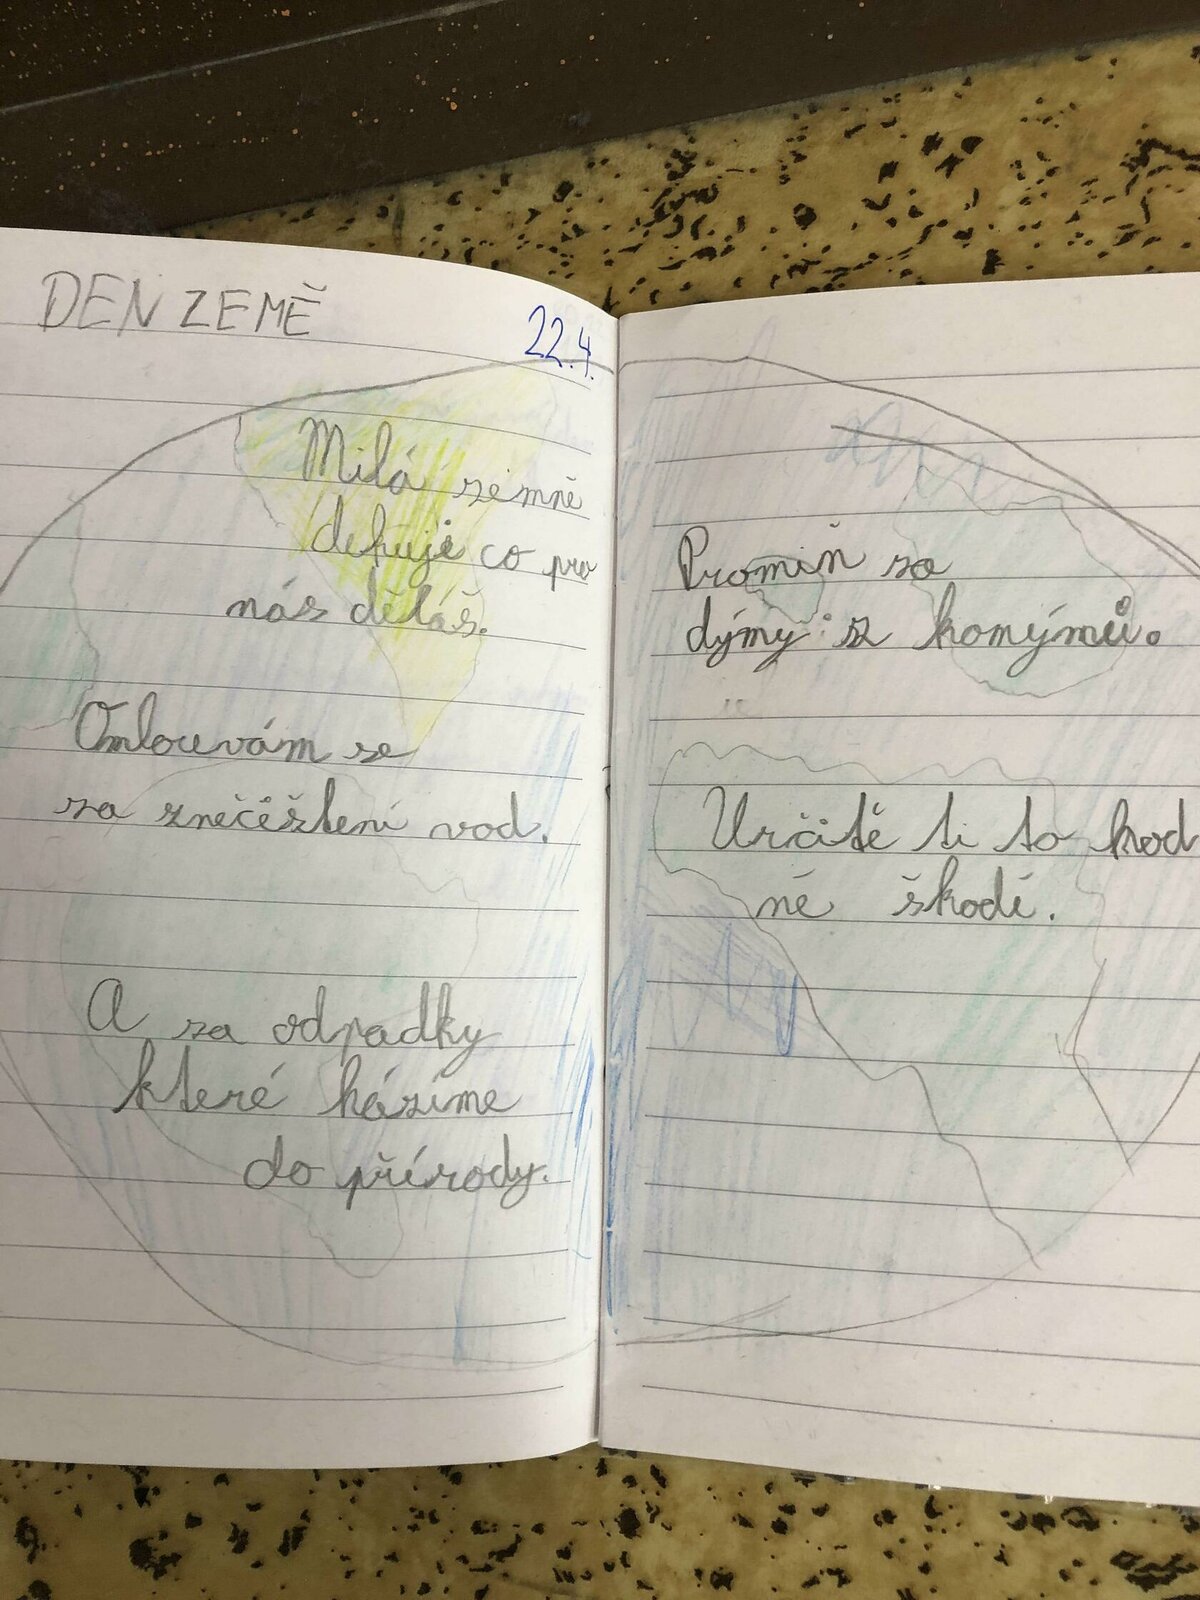 DEN ZEMĚ
22.4.
Milá zěmně
dekuji co pro
nás děláš.
Omlouvám se
za znečěštení vod.
A za odpadky
které házíme
do přírody.
Promiň za
dýmy z komýmů.
Určitě ti to hod
ně škodí.